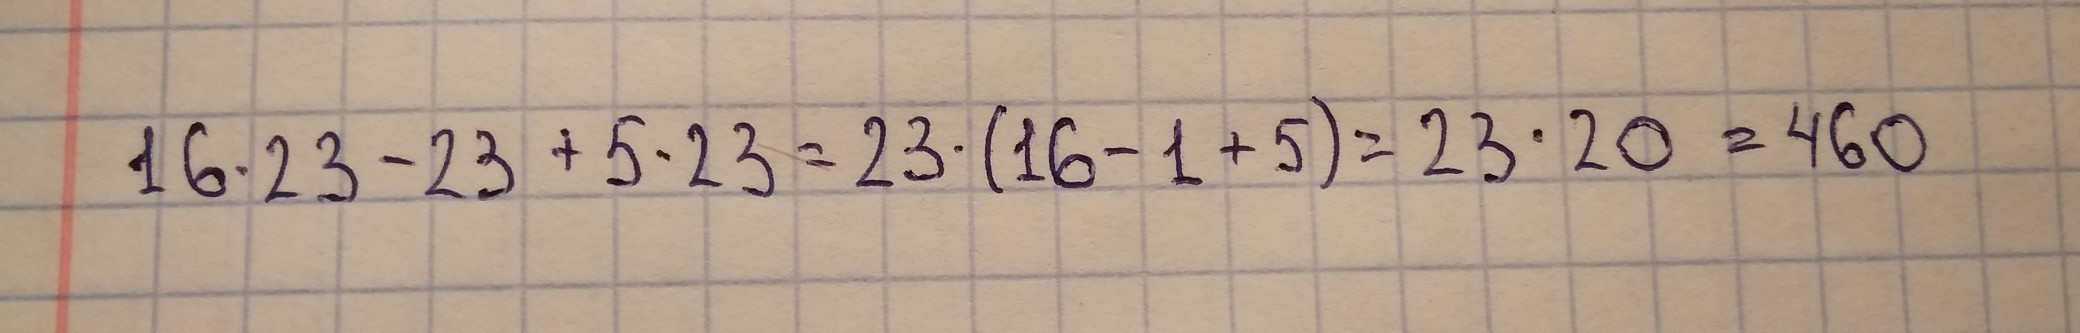 16·23-23+5·23=23·(16-1+5)=23·20=460